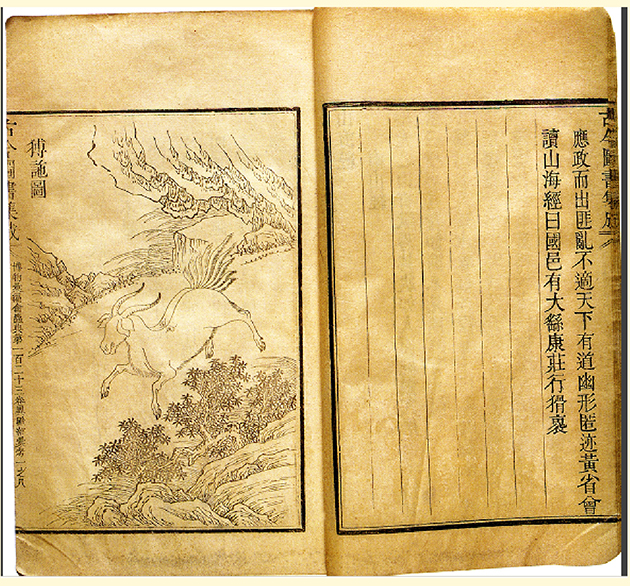 古今圖書集成
應政而出匪亂不適天下有道幽形匿迹黃省會
讀山海經曰國邑有大繇康莊行猾褱
猼訑圖
古今圖書集成
博物彙編禽蟲典第一百二十三卷異獸部彙考一之八